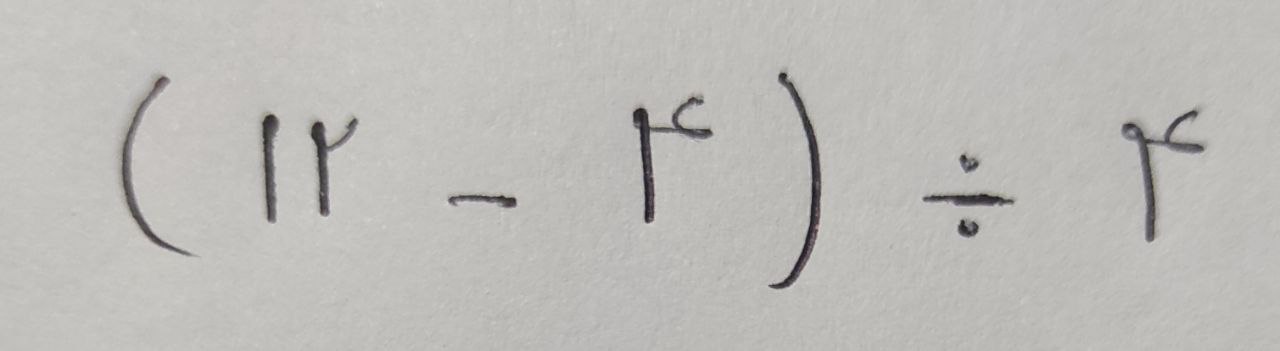 ( ۱۲ - ۴ ) ÷ ۴